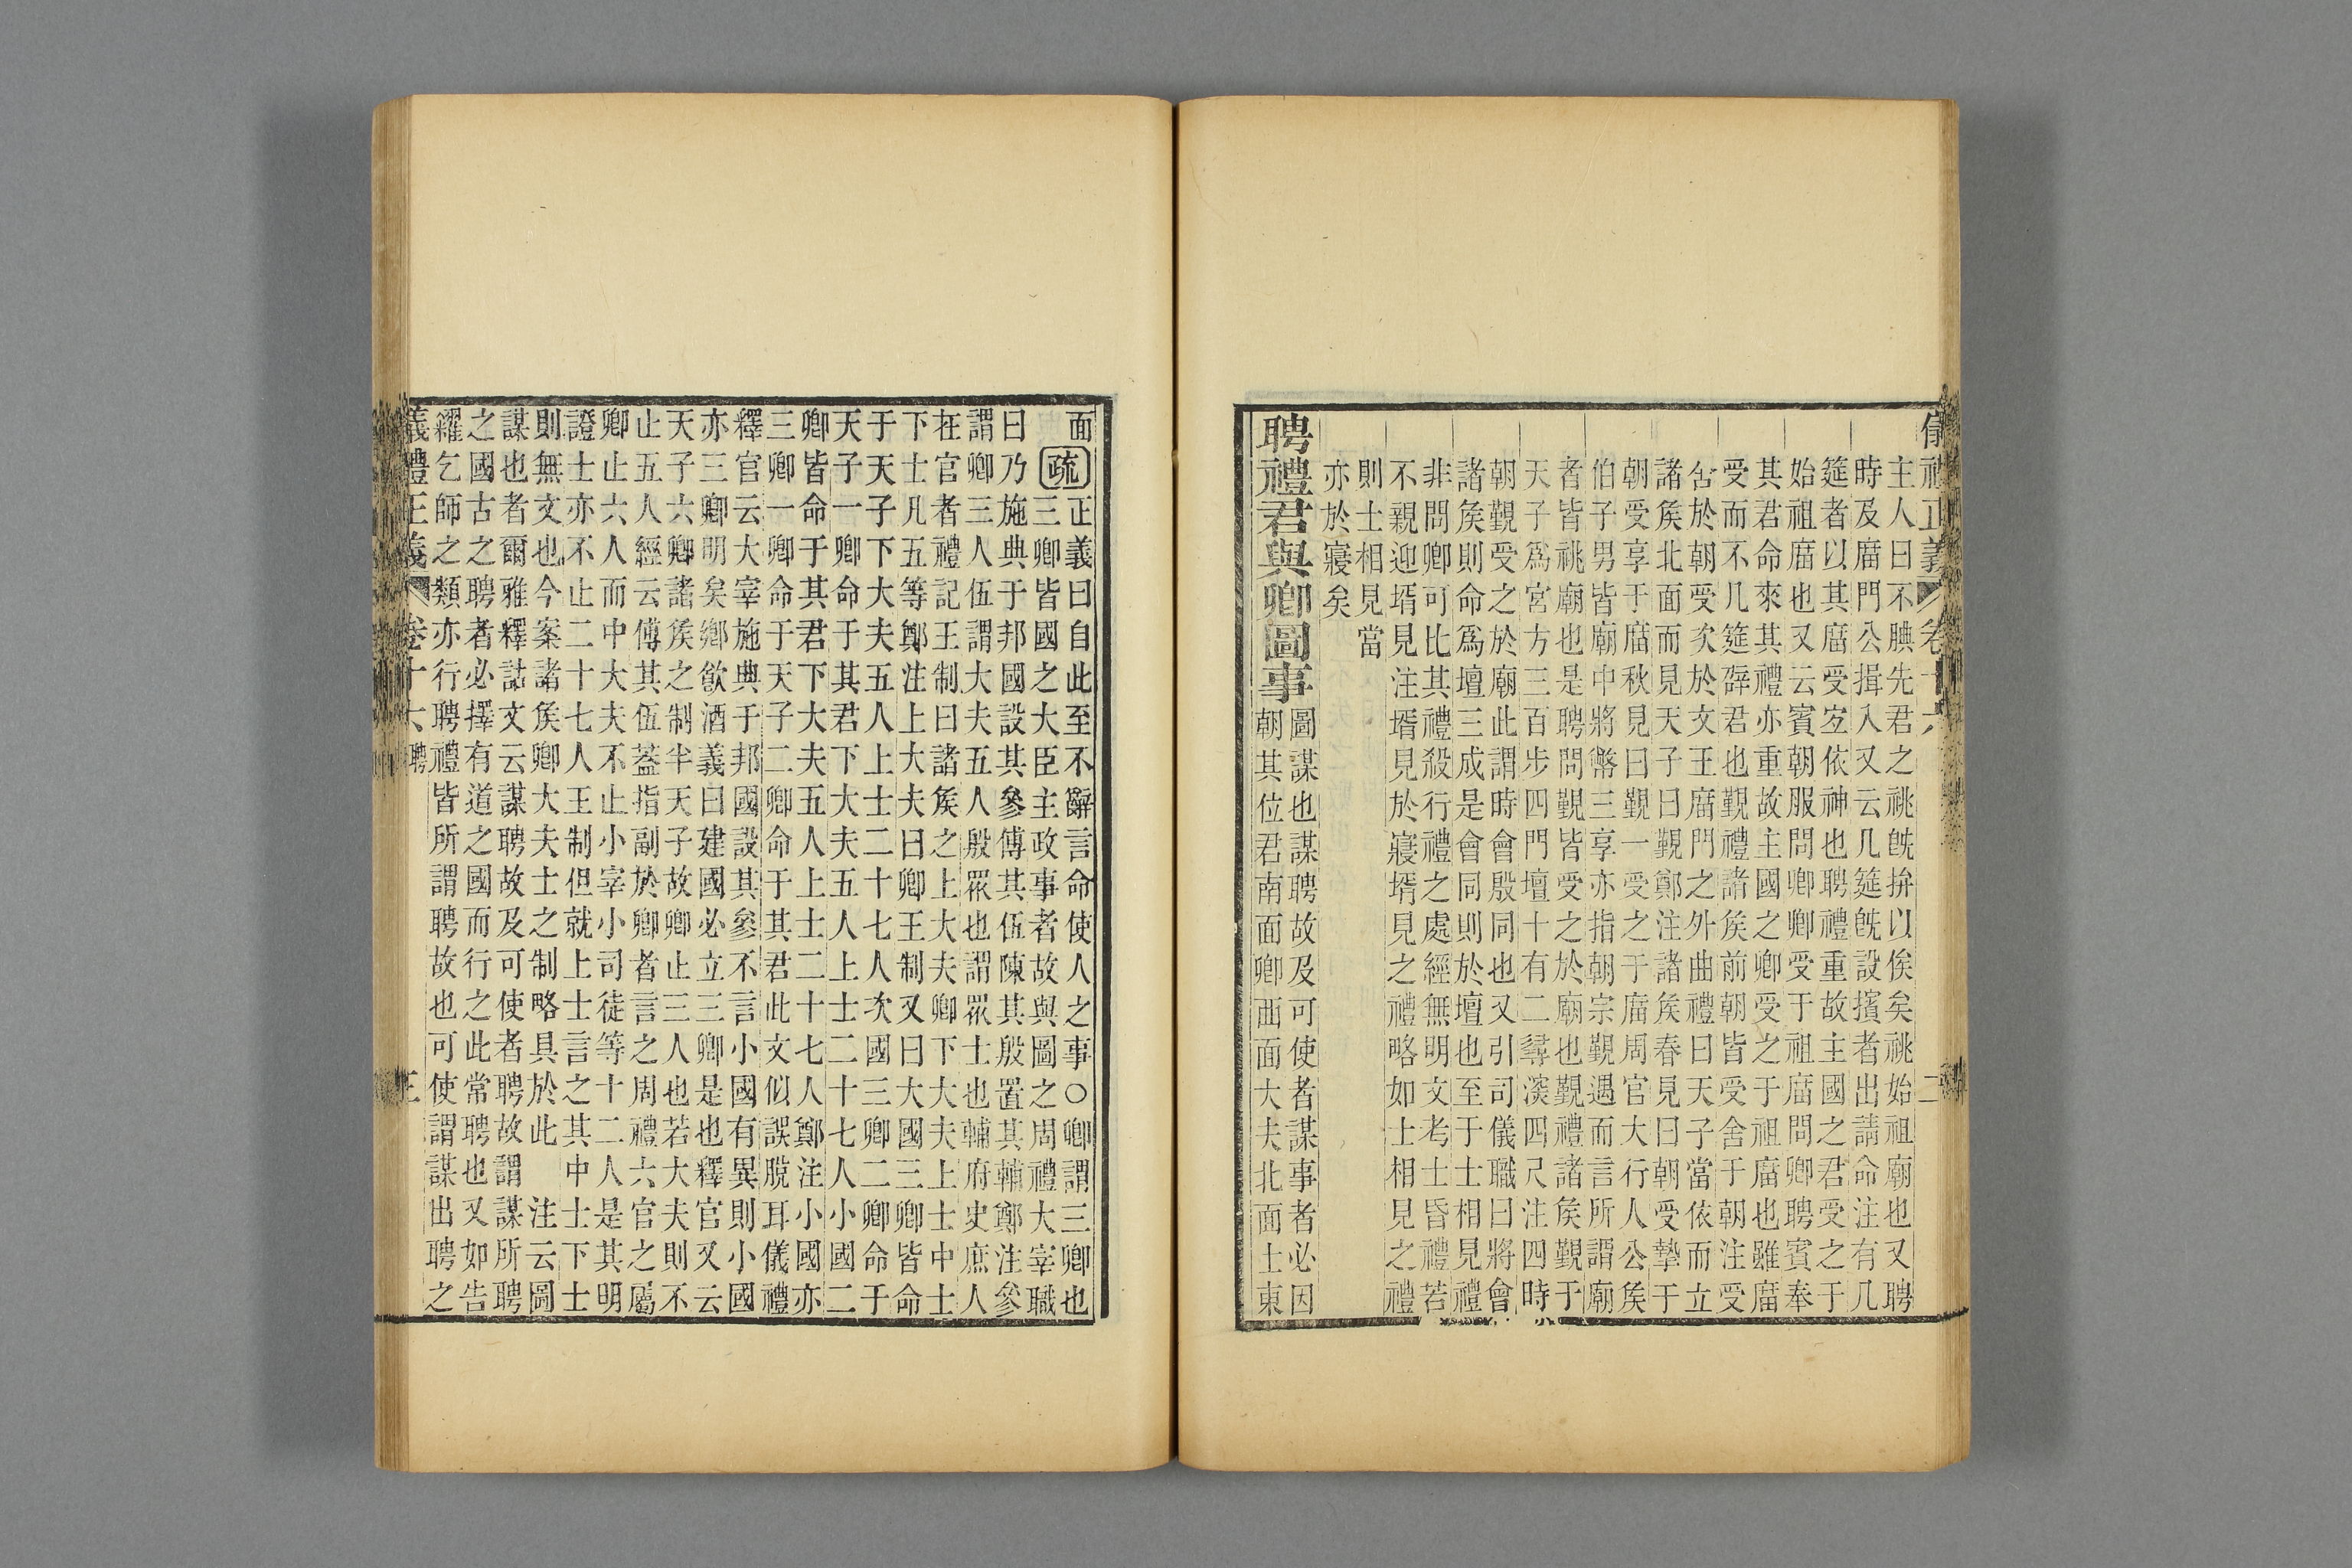 儀禮正義 卷十六 二
主人曰不腆先君之祧旣拚以俟矣祧始祖廟也又聘
時及廟門公揖入又云几筵旣設擯者出請命注有几
筵者以其廟受宜依神也聘禮重故主國之君受之于
始祖廟也又云賓朝服問卿卿受于祖廟問卿聘賓奉
其君命來其禮亦重故主國之卿受之于祖廟也雖廟
受而不几筵辟君也覲禮諸矦前朝皆受舍于朝注受
舍於朝受次於文王廟門之外曲禮曰天子當依而立
諸矦北面而見天子曰覲鄭注諸矦春見曰朝受摯于
朝受享于廟秋見曰覲一受之于廟周官大行人公矦
伯子男皆廟中將幣三享亦指朝宗覲遇而言所謂廟
者皆祧廟也是聘問覲皆受之於廟也覲禮諸矦覲于
天子爲宮方三百步四門壇十有二尋深四尺注四時
朝覲受之於廟此謂時會殷同也又引司儀職曰將會
諸矦則命爲壇三成是會同則於壇也至于士相見禮
非問卿可比其禮殺行禮之處經無明文考士昏禮若
不親迎壻見注壻見於寢壻見之禮略如士相見之禮
則士相見當
亦於寢矣
聘禮君與卿圖事
圖謀也謀聘故及可使者謀事者必因
朝其位君南面卿西面大夫北面士東
面
疏
正義曰自此至不辭言命使人之事○卿謂三卿也
三卿皆國之大臣主政事者故與圖之周禮大宰職
曰乃施典于邦國設其參傅其伍陳其殷置其輔鄭注參
謂卿三人伍謂大夫五人殷眾也謂眾士也輔府史庶人
在官者禮記王制曰諸矦之上大夫卿下大夫上士中士
下士凡五等鄭注上大夫曰卿王制又曰大國三卿皆命
于天子下大夫五人上士二十七人次國三卿二卿命于
天子一卿命于其君下大夫五人上士二十七人小國二
卿皆命于其君下大夫五人上士二十七人鄭注小國亦
三卿一卿命于天子二卿命于其君此文似誤脫耳儀禮
釋官云大宰施典于邦國設其參不言小國有異則小國
亦三卿明矣鄉飮酒義曰建國必立三卿是也釋官又云
天子六卿諸矦之制半天子故卿止三人也若大夫則不
止五人經云傅其伍蓋指副於卿者言之周禮六官之屬
卿止六人而中大夫不止小宰小司徒等十二人是其明
證士亦不止二十七人王制但就上士言之其中士下士
則無文也今案諸矦卿大夫士之制略具於此　注云圖
謀也者爾雅釋詁文云謀聘故及可使者聘故謂謀所聘
之國古之聘者必擇有道之國而行之此常聘也又如告
糴乞師之類亦行聘禮皆所謂聘故也可使謂謀出聘之
義禮正義 卷十六 聘 三